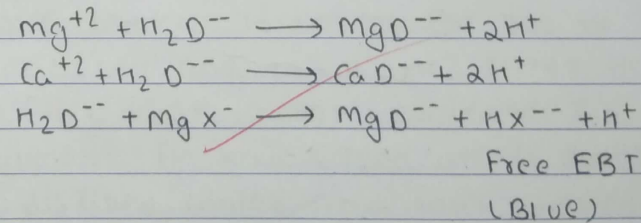 mg⁺² + H₂D⁻⁻ ⟶ MgD⁻⁻ + 2H⁺
Ca⁺² + H₂D⁻⁻ ⟶ CaD⁻⁻ + 2H⁺
H₂D⁻⁻ + Mgx⁻ ⟶ MgD⁻⁻ + Hx⁻⁻ + H⁺
Free EBT
(Blue)